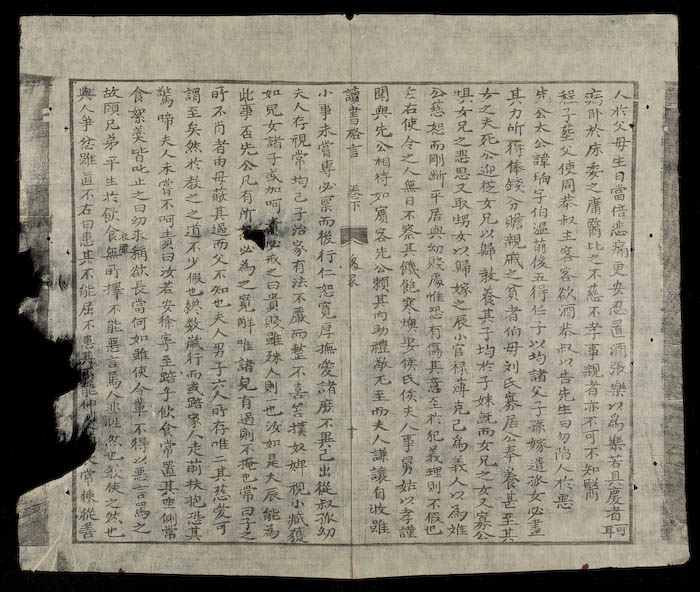 人於父母生日當倍悲痛更安忍置酒張樂以爲樂若具慶者可耳
病卧於床委之庸醫比之不慈不孝事親者亦不可不知醫
程子葬父使周恭叔主客客欲酒恭叔以告先生曰勿陷人於惡
先公太公諱珦字伯溫前後五得任子以均諸父子孫嫁遣孤女必盡
其力所得俸錢分贍親戚之貧者伯母刘氏寡居公奉養甚至其
女之夫死公迎從女兄以歸敎養其子均於子姪旣而女兄之女又寡公
懼女兄之悲思又取甥女以歸嫁之辰小官禄薄克己爲義人以爲难
公慈恕而剛斷平居與幼賤處惟恐有傷其意至於犯義理則不假也
左右使令之人無日不察其饑飽寒燠娶侯氏侯夫人事舅姑以孝謹
聞與先公相待如賓客先公賴其內助禮敬尤至而夫人謙讓自收雖
讀書格言 卷下 十
小事未嘗專必禀而後行仁恕寬厚撫愛諸庶不異己出從叔孤幼
夫人存視常均己子治家有法不嚴而整不喜笞撲奴婢視小臧獲
如兒女諸子或加呵責必戒之曰貴賤雖殊人則一也汝如是大辰能爲
此事否先公凡有所怒必爲之寬解唯諸兒有過則不掩也常曰子之
所不肖者由母蔽其過而父不知也夫人男子六人所存唯二其慈愛可
謂至矣然於敎之之道不少假也纔數歲行而或踣家人走前扶抱恐其
驚啼夫人未嘗不呵責曰汝若安徐寧至踣乎飲食常置其坐側常
食絮羹皆叱止之曰幼求稱欲長當何如雖使令輩不得以惡言罵之
故頤兄弟平生於飲食衣服無所擇不能惡言罵人非性然也敎使之然也
與人爭忿雖直不右曰患其不能屈不患其不能伸常使從善